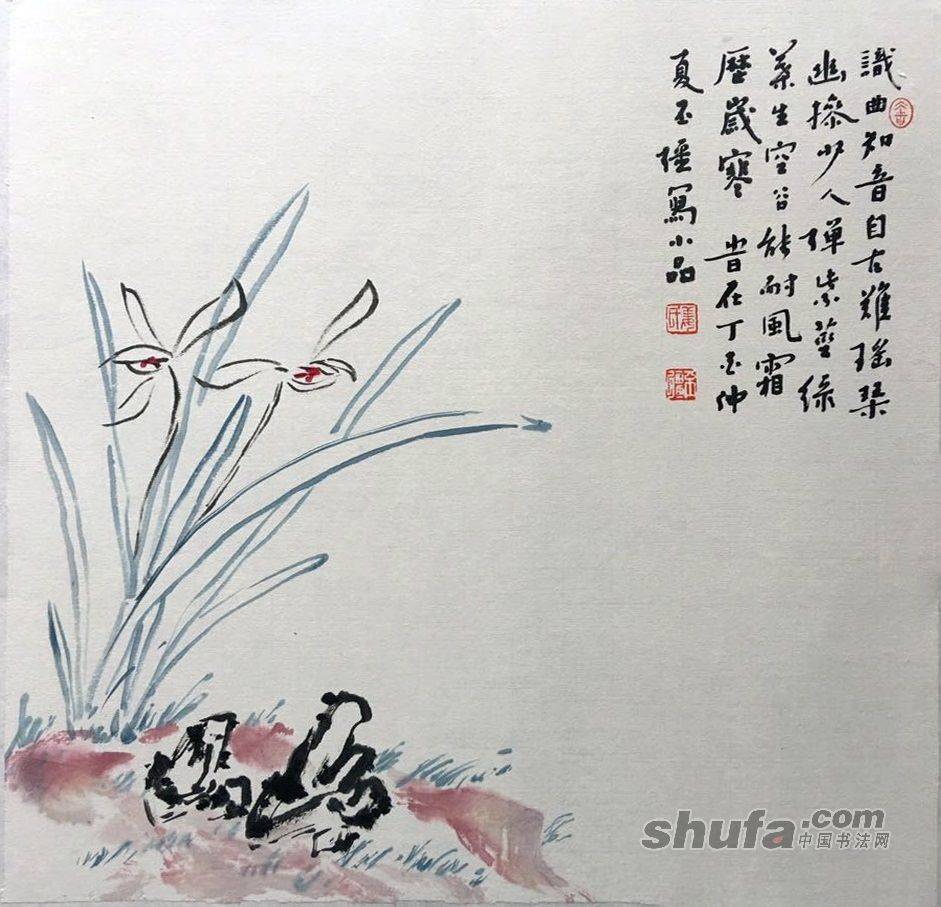 識曲知音自古難瑤琹
幽操少人彈紫莖綠
葉生空谷能耐風霜
歷歲寒 旹在丁酉仲
夏寫小品
shufa.com
中国书法网